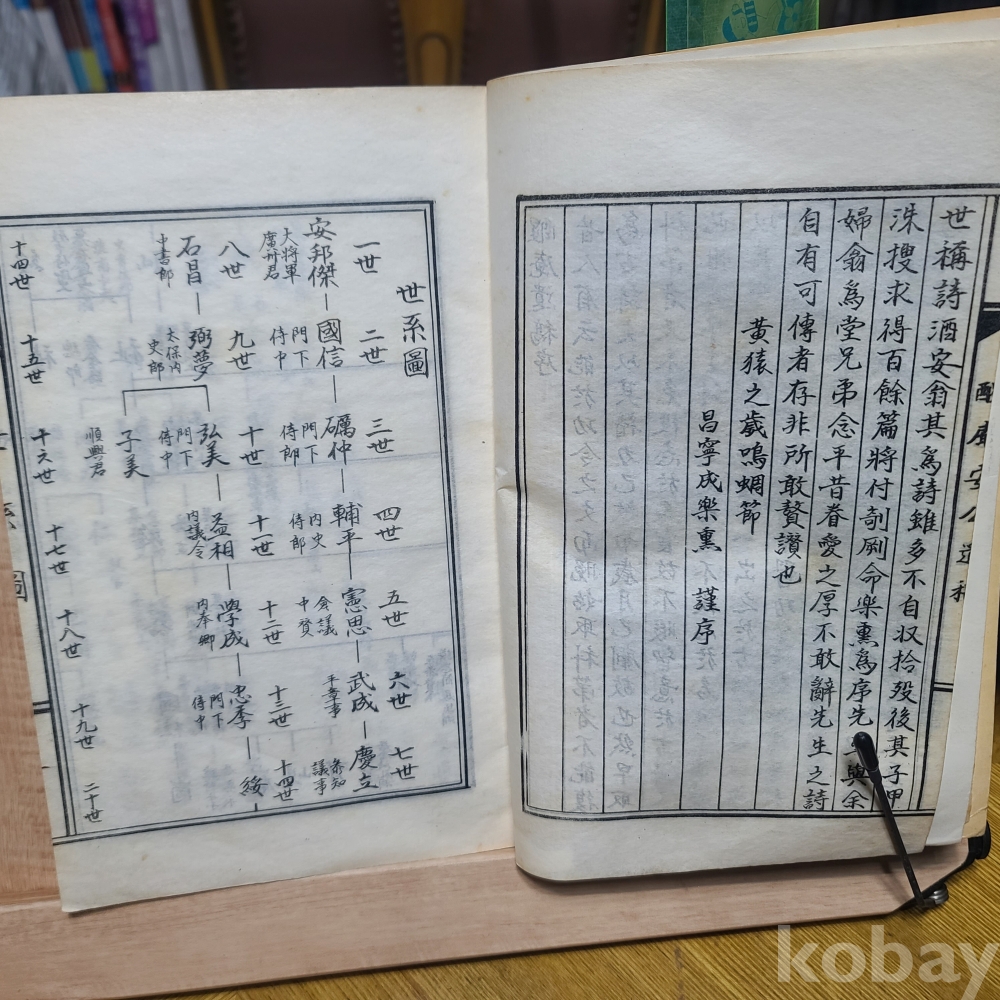 世稱詩酒安翁其爲詩雖多不自収拾歿後其子甲
洙搜求得百餘篇將付剞劂命樂熏爲序先生與余
婦翁爲堂兄弟念平昔眷愛之厚不敢辭先生之詩
自有可傳者存非所敢贅讚也
黃猿之歲鳴蜩節
昌寧成樂熏不謹序
世系圖
一世
二世
三世
四世
五世
六世
七世
安邦傑
大將軍
廣州君
國信
門下
侍中
礪仲
門下
侍郎
輔平
內史
侍郎
憲思
僉議
中贊
武成
平章事
慶立
叅知
議事
八世
九世
十世
十一世
十二世
十三世
十四世
石昌
中書郎
弼夢
太保內
史郎
弘美
門下
侍中
益相
內議令
學成
內奉卿
忠季
門下
侍中
綏
子美
順興君
十四世
十五世
十六世
十七世
十八世
十九世
二十世
系
圖
kobay